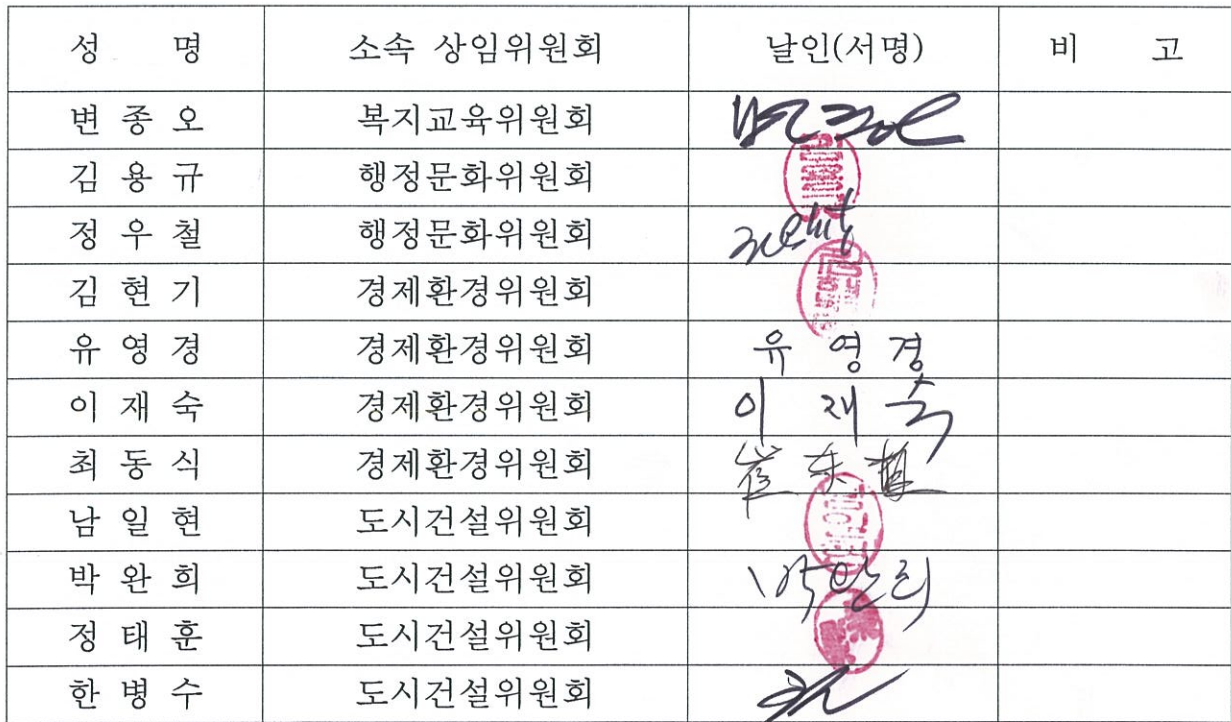 성 명 소속 상임위원회 날인(서명) 비 고
변 종 오 복지교육위원회
김 용 규 행정문화위원회
정 우 철 행정문화위원회
김 현 기 경제환경위원회
유 영 경 경제환경위원회 유 영 경
이 재 숙 경제환경위원회 이 재 숙
최 동 식 경제환경위원회
남 일 현 도시건설위원회
박 완 희 도시건설위원회 박완희
정 태 훈 도시건설위원회
한 병 수 도시건설위원회